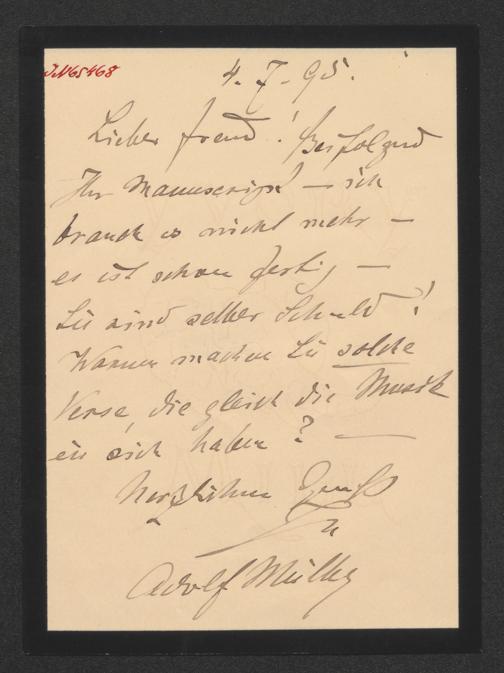 J.N 65468
4. 7. 95.
Lieber Freund! Beifolgend
Ihr Manuscript — ich
brauch es nicht mehr —
es ist schon fertig —
Sie sind selber Schuld!
Warum machen Sie solche
Verse, die gleich die Musik
in sich haben? —
Herzlichen Gruß
Adolf Müller